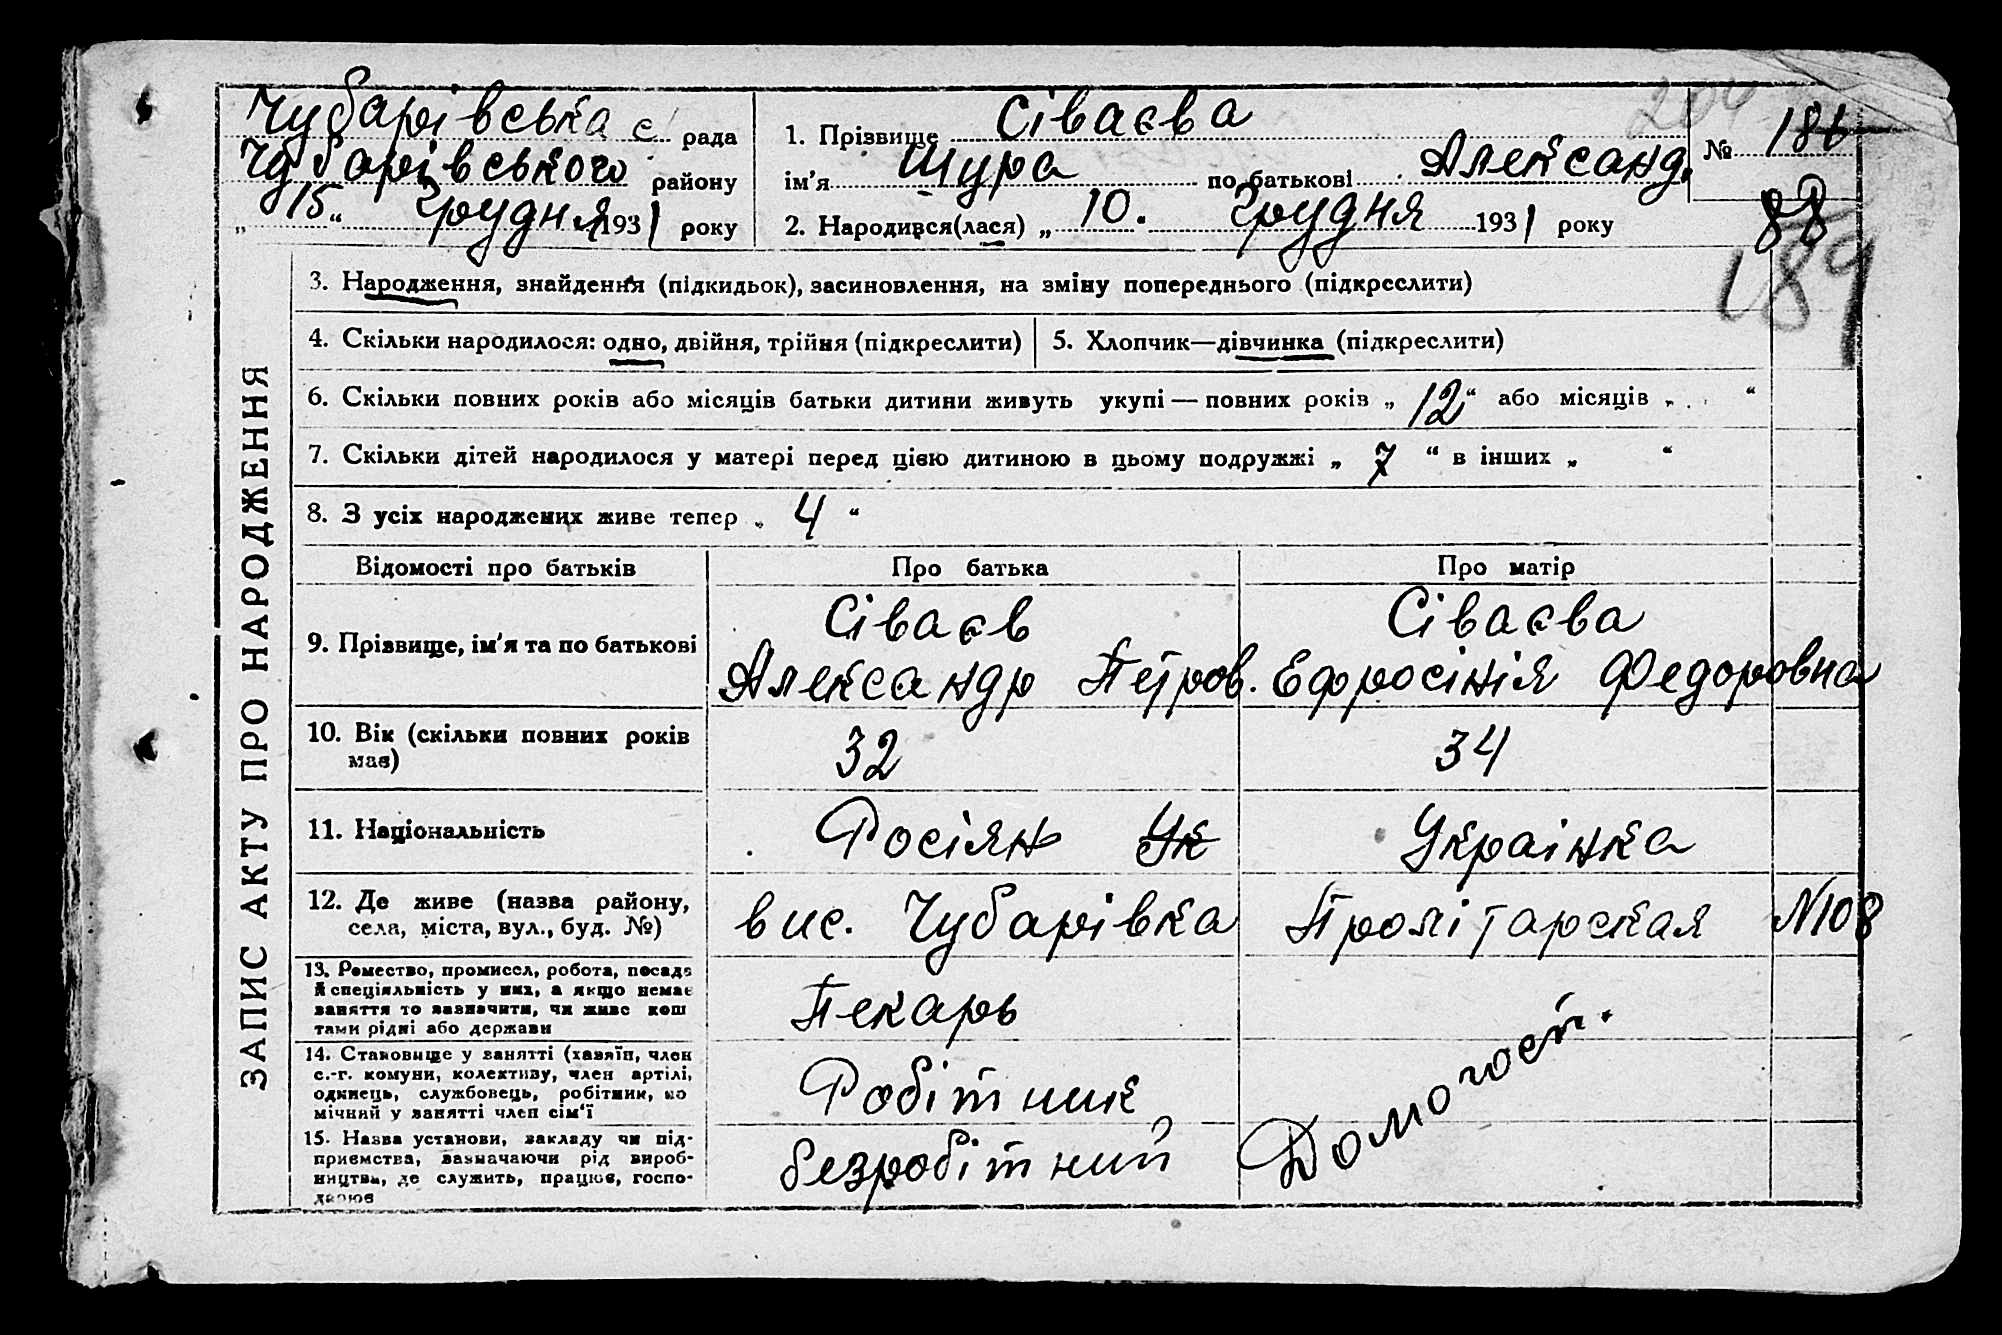 204
Чубарівська с рада
Чубарівського району
„ 15 “ Грудня 1931 року
1. Прізвище Сіваєва
ім'я Шура по батькові Александ.
№ 186
2. Народився(лася) „ 10. Грудня 1931 року
88
189
ЗАПИС АКТУ ПРО НАРОДЖЕННЯ
3. Народження, знайдення (підкидьок), засиновлення, на зміну попереднього (підкреслити)
4. Скільки народилося: одно, двійня, трійня (підкреслити) 5. Хлопчик—дівчинка (підкреслити)
6. Скільки повних років або місяців батьки дитини живуть укупі — повних років „ 12 “ або місяців „ “
7. Скільки дітей народилося у матері перед цією дитиною в цьому подружжі „ 7 “ в інших „ “
8. З усіх народжених живе тепер „ 4 “
Відомості про батьків Про батька Про матір
9. Прізвище, ім'я та по батькові
Сіваєв
Александр Петров.
Сіваєва
Ефросінія Федоровна
10. Вік (скільки повних років
має)
32
34
11. Національність
Росіян Ук
Украінка
12. Де живе (назва району,
села, міста, вул., буд. №)
вис. Чубарівка Пролітарская №108
13. Ремество, промисел, робота, посада
й спеціяльність у них, а якщо немає
заняття то зазначити, чи живе кош
тами рідні або держави
Пекарь
14. Становище у занятті (хазяїн, член
с.-г. комуни, колективу, член артілі,
одинець, службовець, робітник, по
мічний у занятті член сім'ї
Робітник
15. Назва установи, закладу чи під-
приємства, зазначаючи рід вироб-
ництва, де служить, працює, госпо-
дарює
безробітний
Домогосп.